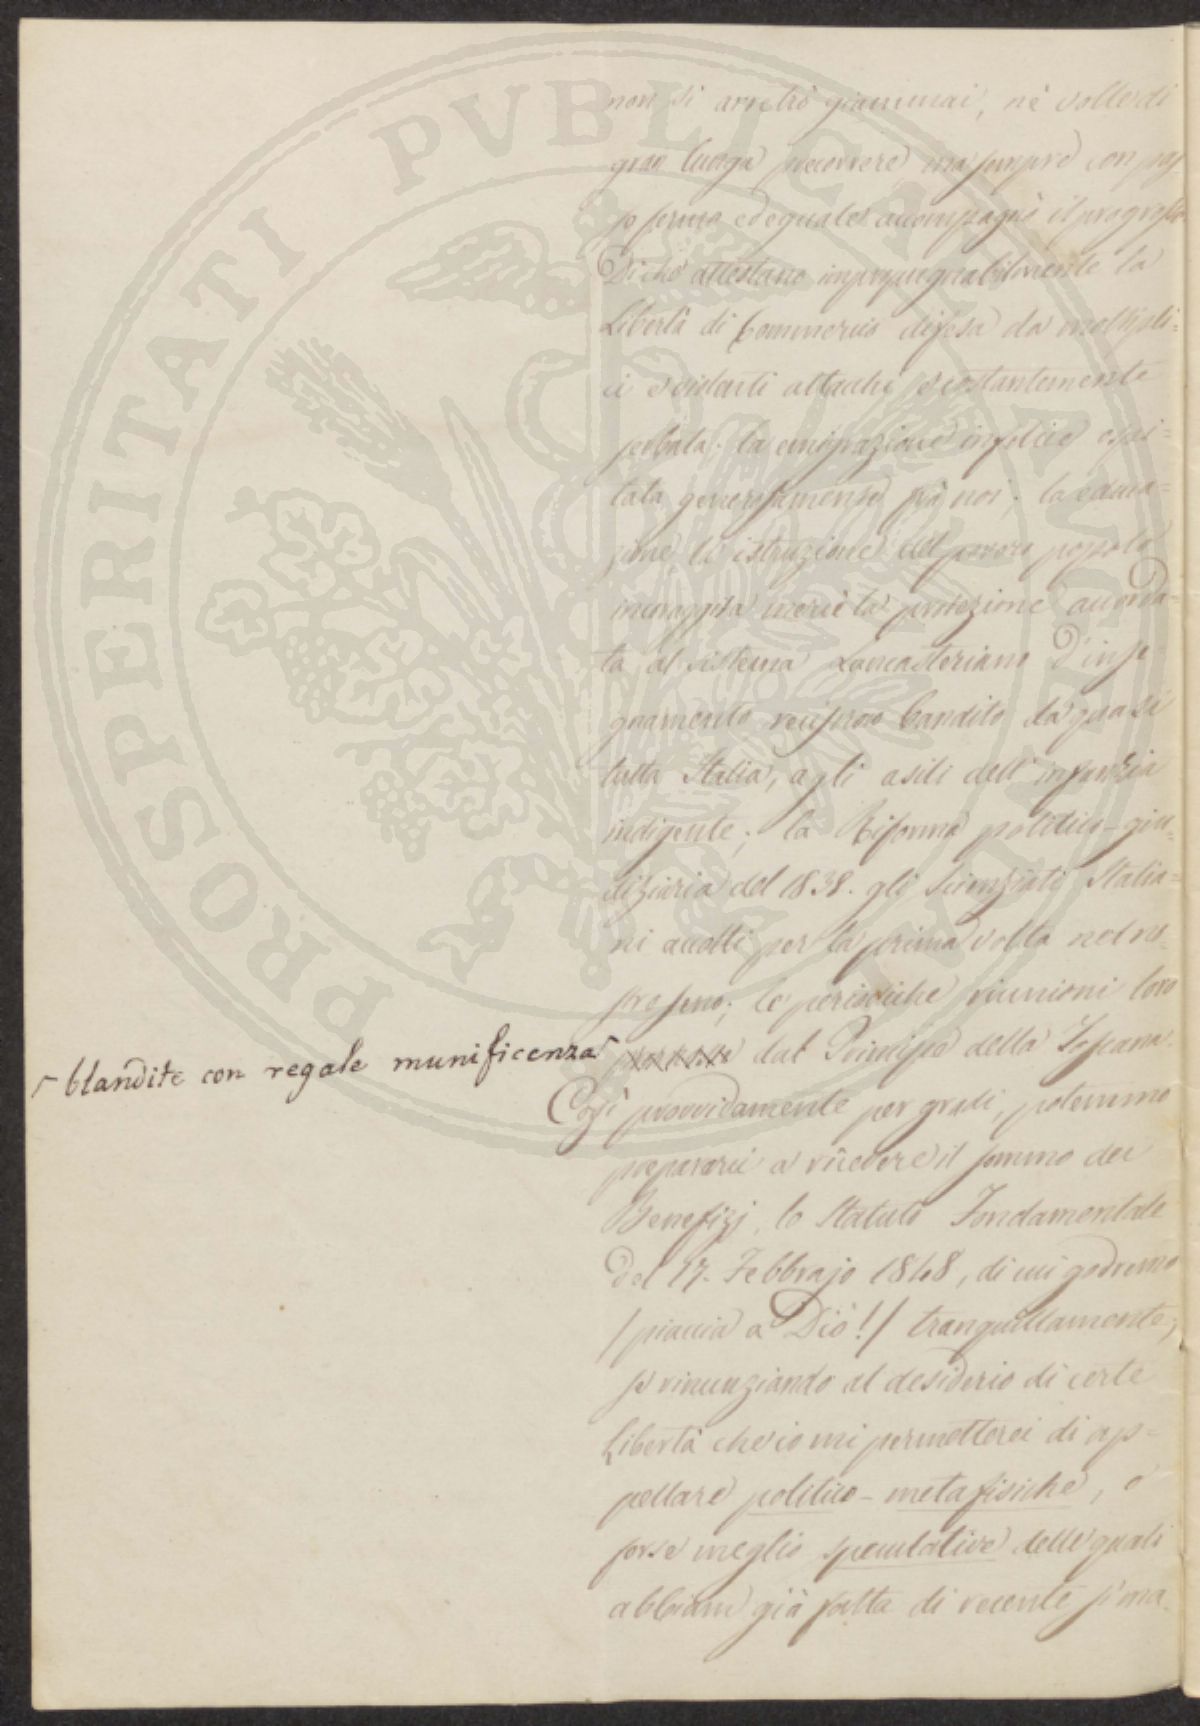 non si arretrò giammai, nè volle di
gran lunga precorrere ma sempre con pas-
so fermo ed eguale accompagnò il progresso
Di che attestano inimpugnabilmente la
Libertà di Commercio difesa da moltipli=
ci evidenti attacchi costantemente
serbata; la emigrazione infelice ospi=
tata generosamente frà noi; la educa=
zione, la istruzione del povero popolo
incoraggita mercè la protezione accorda=
ta al sistema Lancasteriano d'inse=
gnamento reciproco bandito da quasi
tutta Italia, agli asili dell'infanzia
indigente; la Riforma politico-giu=
diziaria del 1838. gli Scienziati Italia=
ni accolti per la prima volta nel no=
stro seno; le periodiche riunioni loro
blandite con regale munificenza
dal Principe della Toscana.
Così provvidamente per gradi, potemmo
prepararci a ricevere il sommo dei
Benefizj, lo Statuto Fondamentale
del 17. Febbrajo 1848, di cui godremo
/piaccia a Dio!/ tranquillamente,
se rinunziando al desiderio di certe
Libertà che io mi permetterei di ap=
pellare politico-metafisiche, o
forse meglio speculative delle quali
abbiam già fatta di recente sì ma